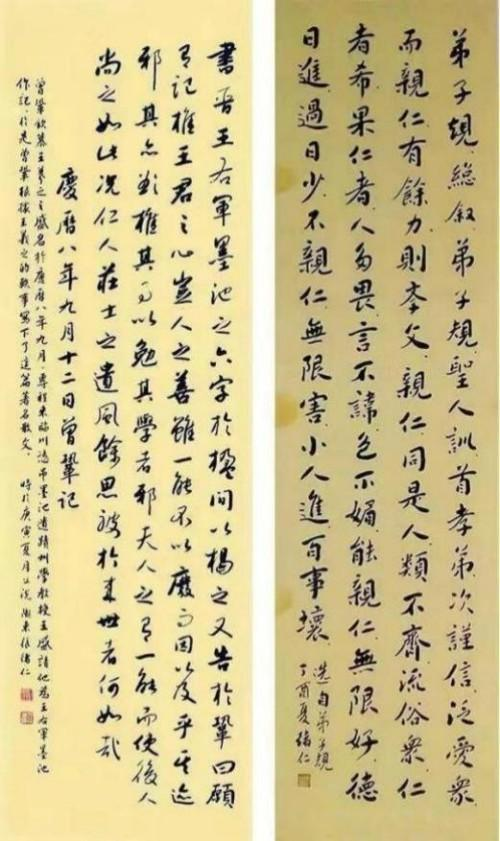 弟子規總叙弟子規聖人訓首孝弟次謹信泛愛衆
而親仁有餘力則学文親仁同是人類不齊流俗衆仁
者希果仁者人多畏言不諱色不媚能親仁無限好德
日進過日少不親仁無限害小人進百事壞
選自弟子規
丁酉夏緒仁
書晉王右軍墨池之六字於楹間以揭之又告於鞏曰願
有記推王君之心豈人之善雖一能不以廢而因以及乎其迹
邪其亦欲推其事以勉其學者邪夫人之有一能而使後人
尚之如此况仁人莊士之遺風餘思被於来世者何如哉
慶曆八年九月十二日曾鞏記
曾鞏欽慕王羲之之盛名於慶曆八年九月專程来臨川憑弔墨池遺蹟州學教授王盛請他為王右軍墨池
作記於是曾鞏根據王羲之的軼事寫下了這篇著名散文 時於庚寅夏月 張緒仁